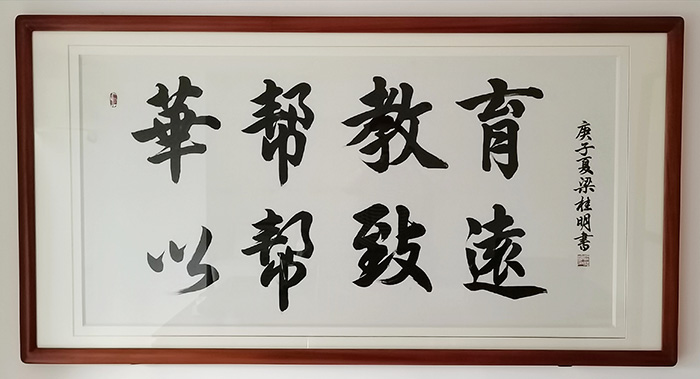 華帮教育
以帮致遠
庚子夏梁桂明書